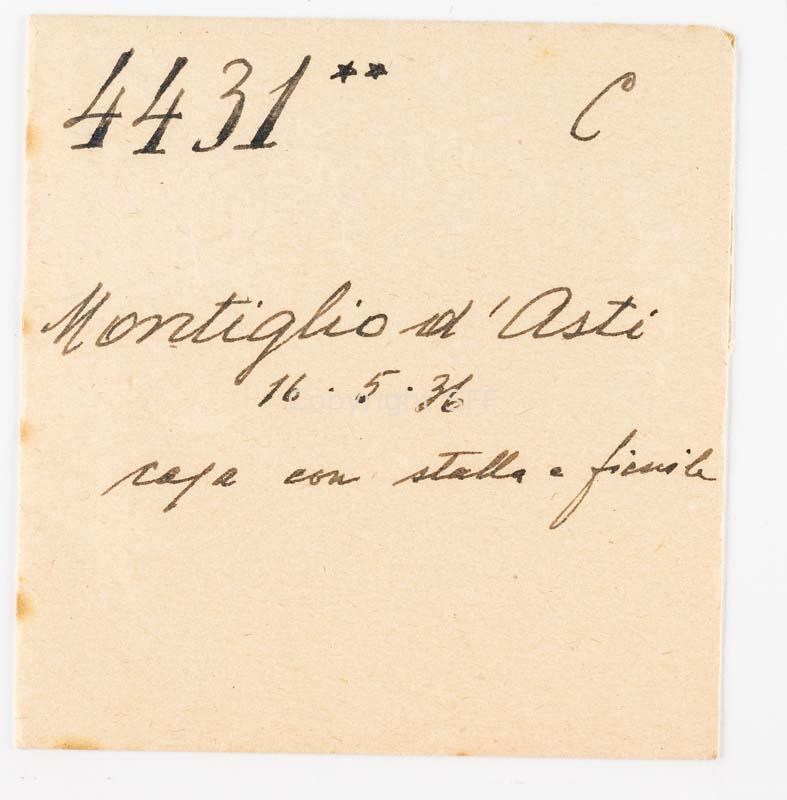 4431** C
Montiglio d'Asti
16.5.36
casa con stalla e fienile